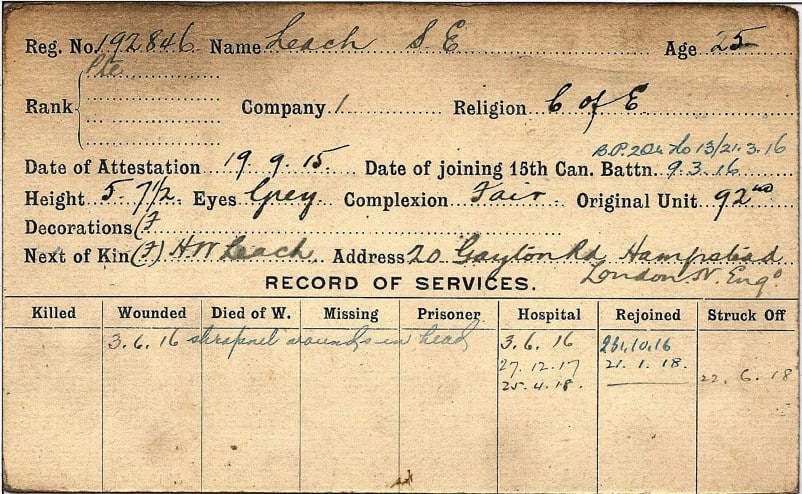 Reg. No. 192846 Name Leach S E Age 25
Pte
Rank Company 1 Religion C of E
B.P. 2 On No 13/21.3.16
Date of Attestation 19.9.15. Date of joining 15th Can. Battn. 9.3.16
Height 5 7 1/2 Eyes Grey Complexion Fair Original Unit 92nd
Decorations (F
Next of Kin (F) H W Leach Address 20 Gayton Rd Hampstead
London N. Engd.
RECORD OF SERVICES.
Killed Wounded Died of W. Missing Prisoner Hospital Rejoined Struck Off
3.6.16 shrapnel wounds in head 3.6.16 10.16
27.12.17 21.1.18.
25.4.18. 22.6.18